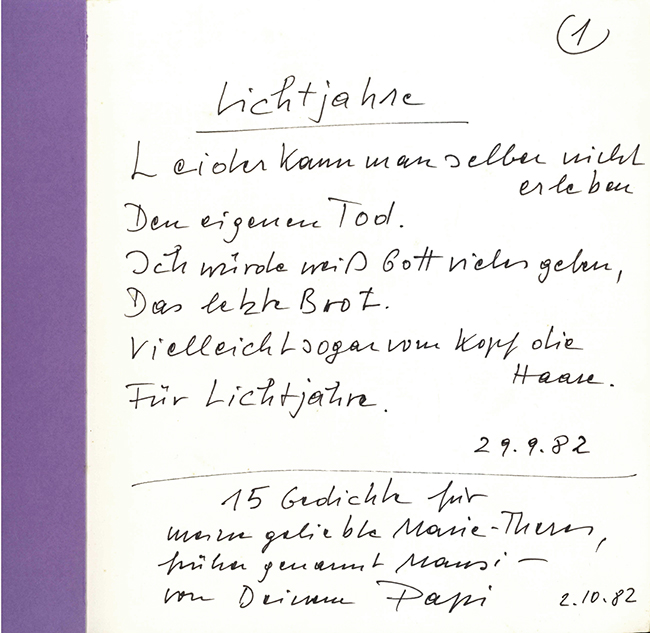 1
Lichtjahre
Leider kann man selber nicht
erleben
Den eigenen Tod.
Ich würde weiß Gott vieles geben,
Das letzte Brot.
Vielleicht sogar vom Kopf die
Haare.
Für Lichtjahre.
29.9.82
15 Gedichte für
meine geliebte Marie-Theres,
früher genannt Mausi –
von Deinem Papi
2.10.82